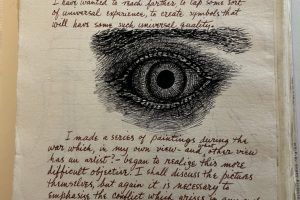 I have wanted to reach farther to tap some sort
of universal experience, to create symbols that
will have some such universal quality.
I made a series of paintings during the
war which, in my own view - and what other view
has an artist? - began to realize this more
difficult objective. I shall discuss the pictures
themselves, but again it is necessary to
emphasize the conflict which arises in any such